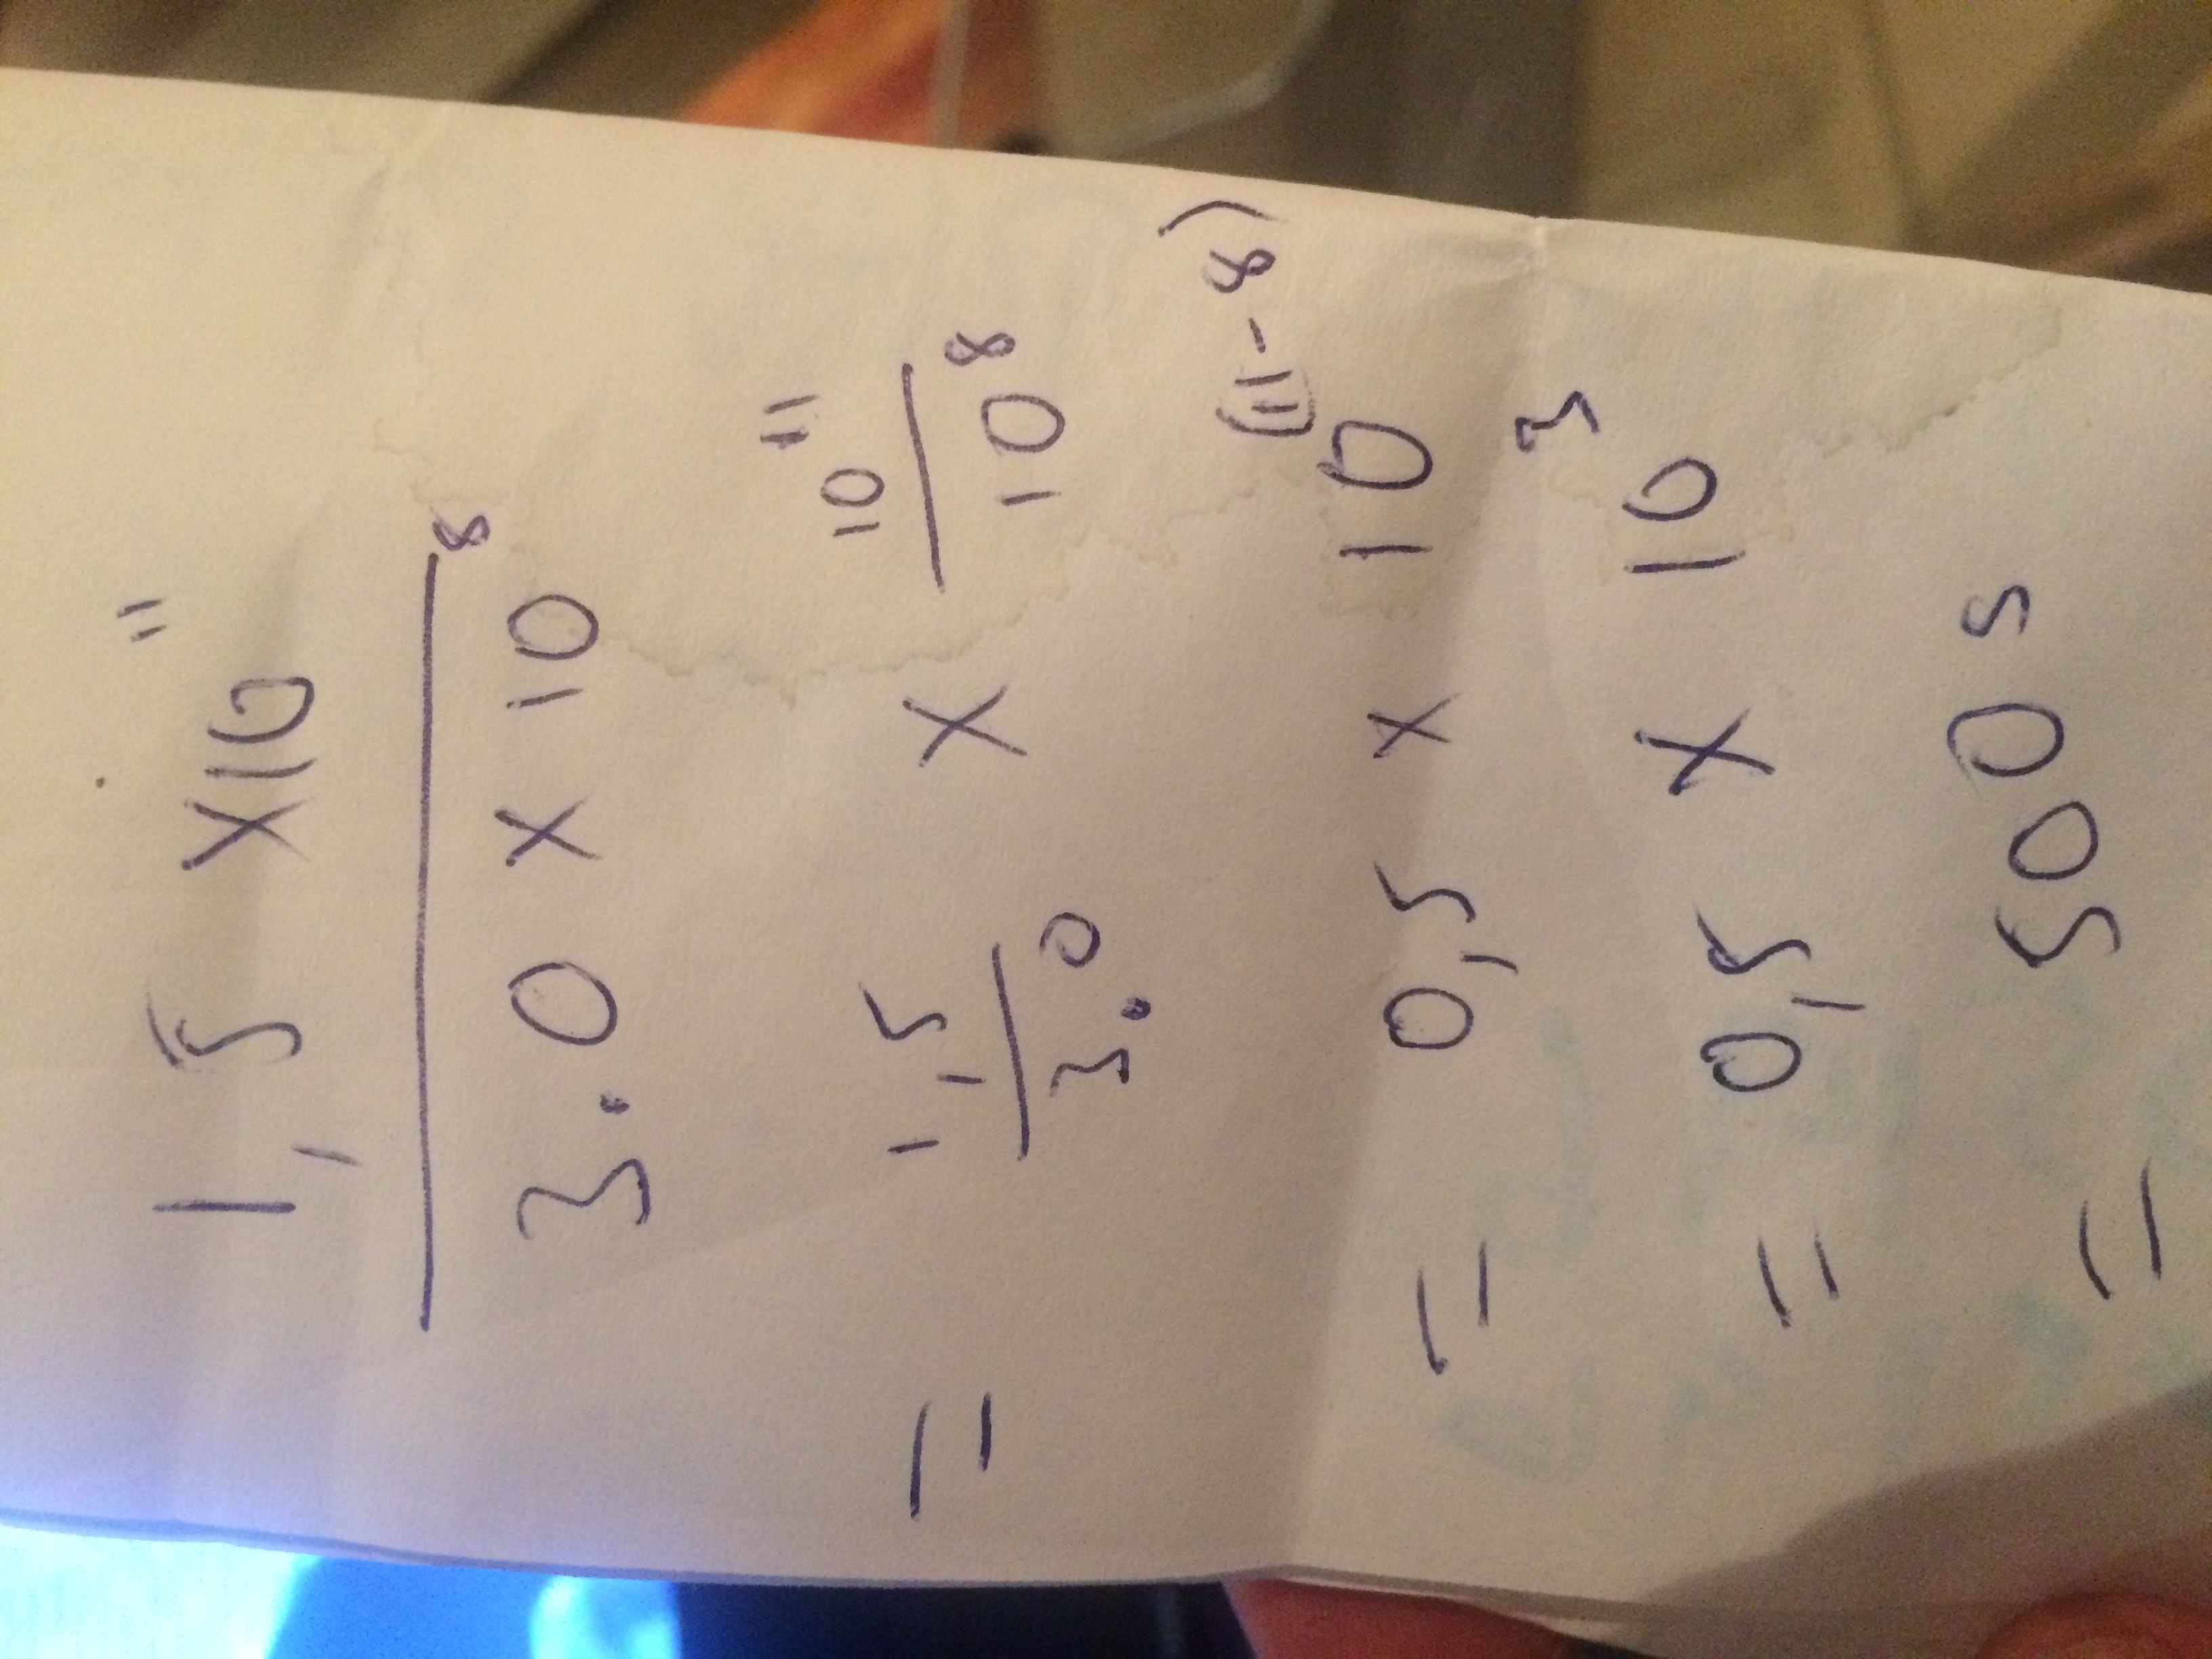 1,5 x 10¹¹
3.0 x 10⁸
= 1,5/3.0 x 10¹¹/10⁸
= 0,5 x 10⁽¹¹⁾⁻⁸⁾
= 0,5 x 10³
= 500 s